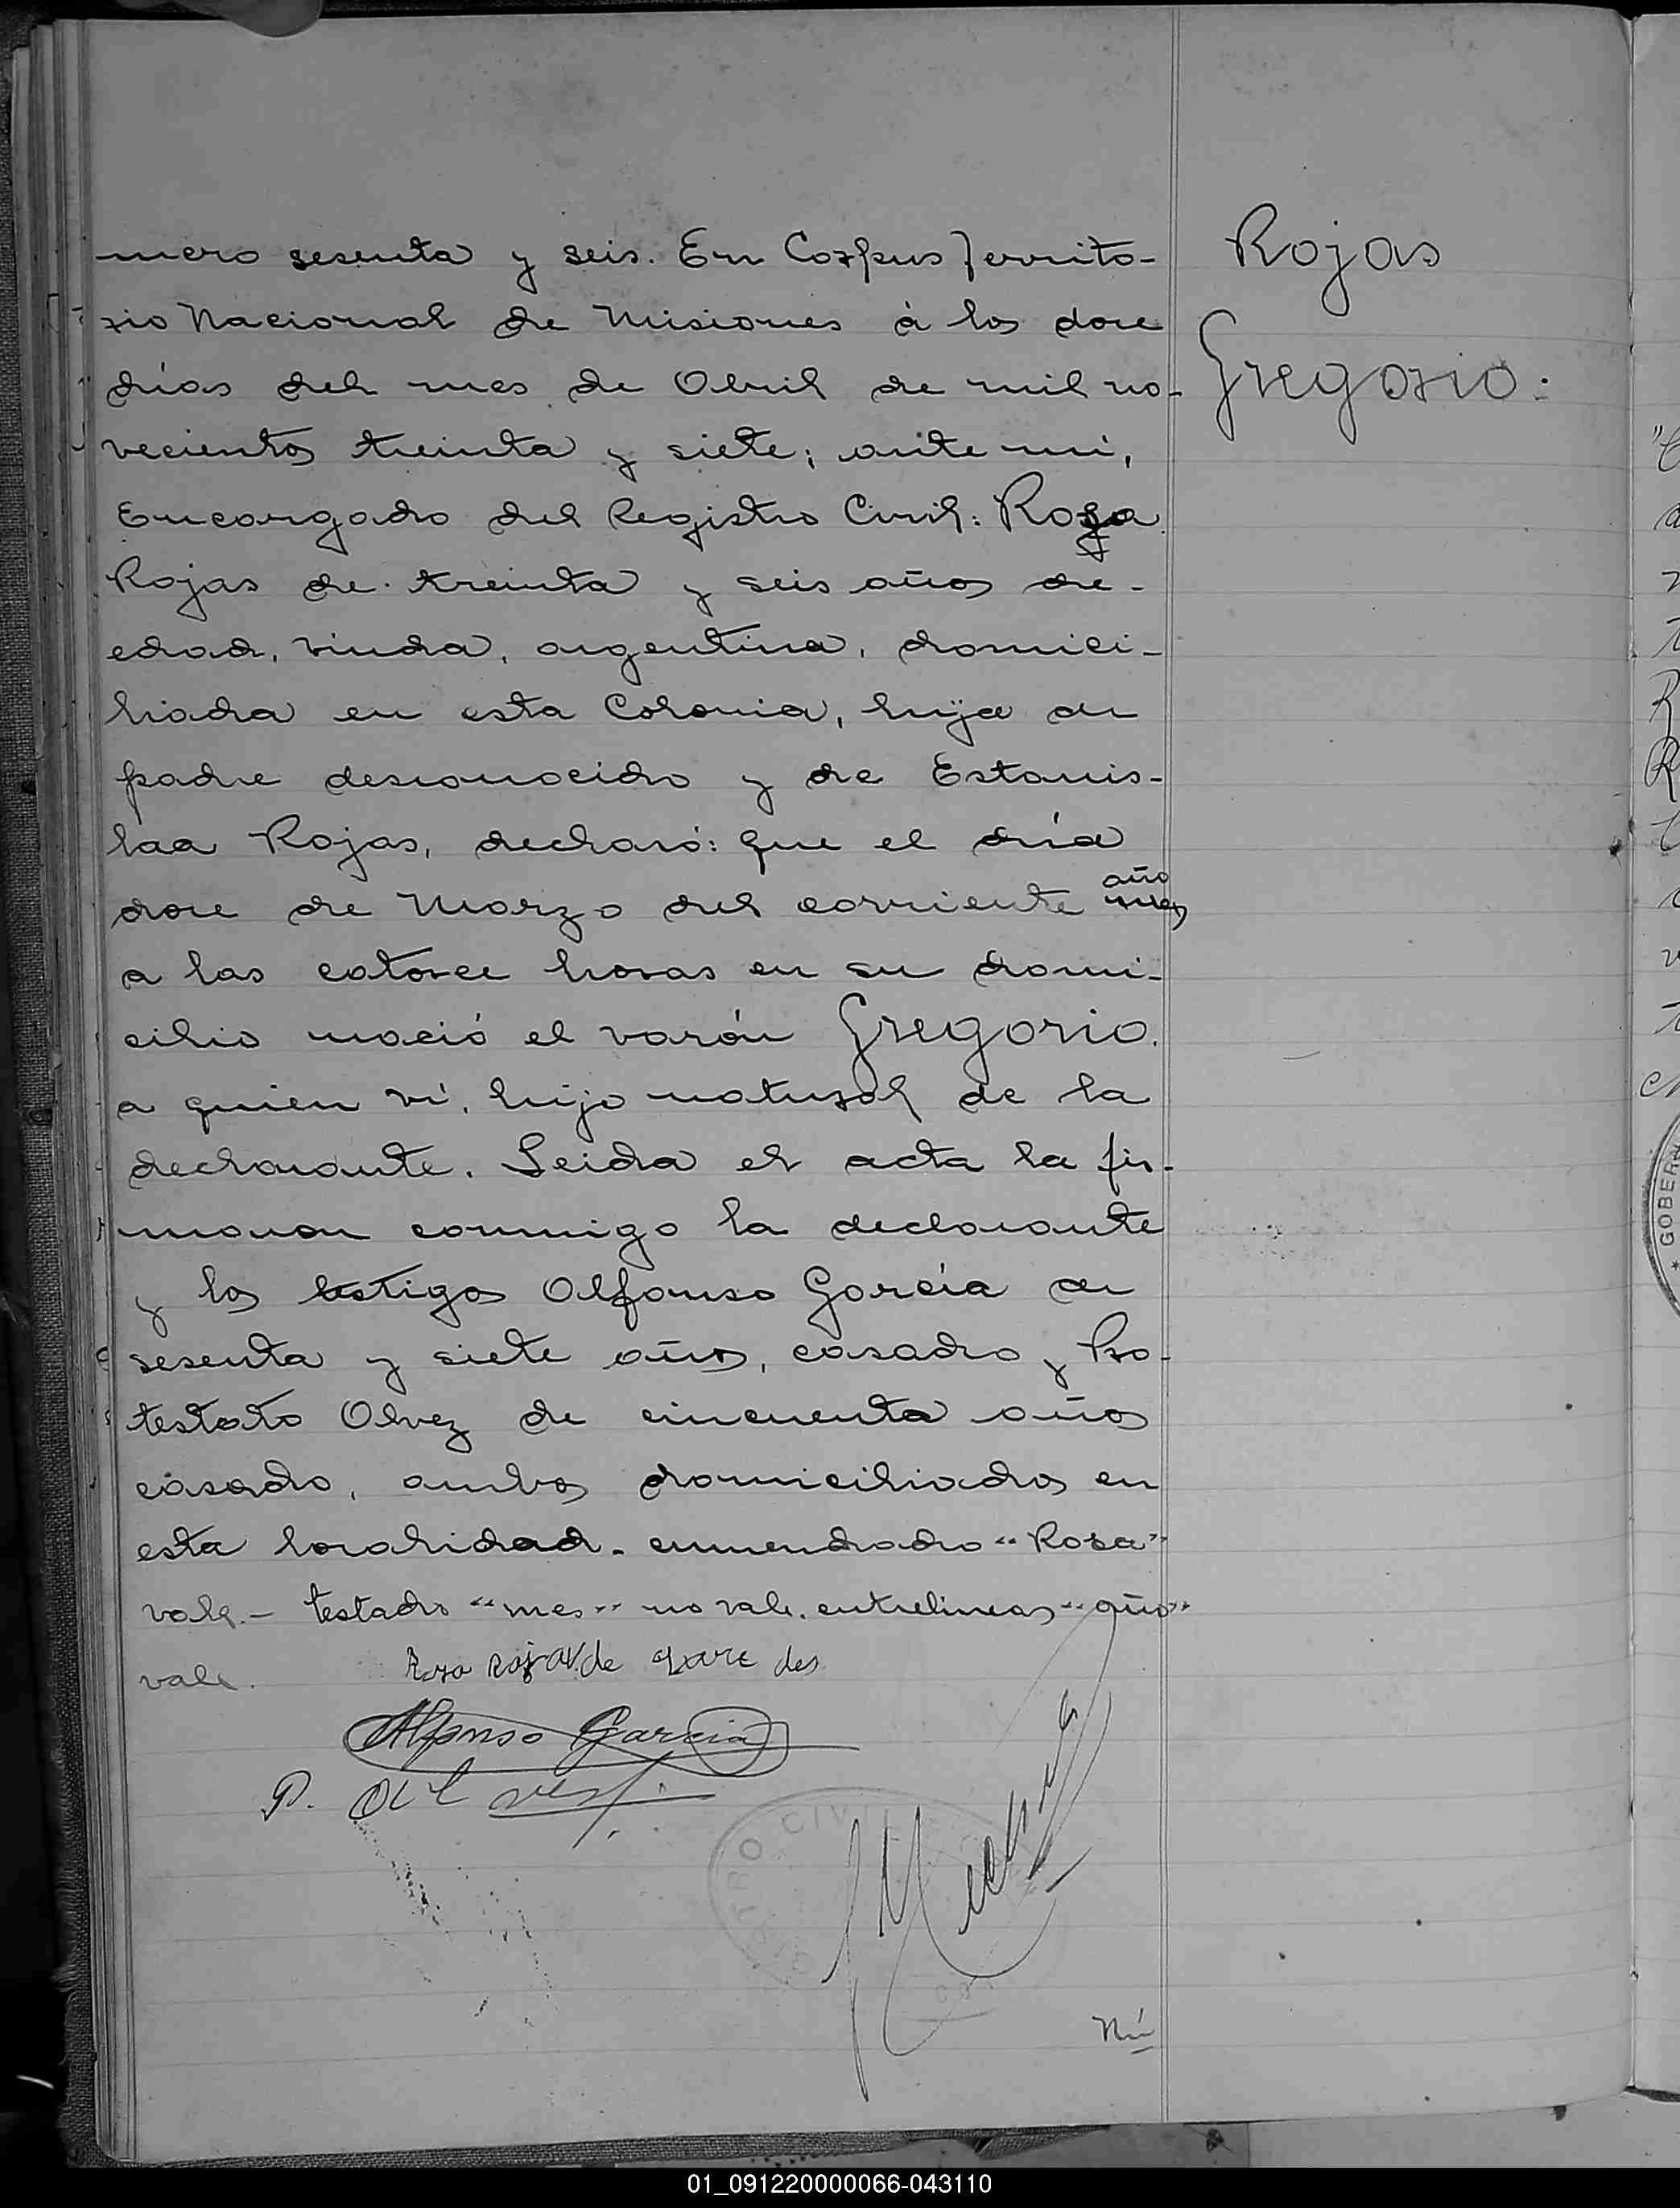 mero sesenta y seis. En Corpus Territo-
rio Nacional de Misiones à los doce
días del mes de Abril de mil no-
vecientos treinta y siete; ante mí,
Encargado del Registro Civil: Rosa
Rojas de treinta y seis años de-
edad, viuda, argentina, domici-
liada en esta Colonia, hija de
padre desconocido y de Estanis-
laa Rojas, declaró: que el día
doce de Marzo del corriente mes año
a las catorce horas en su domi-
cilio nació el varón Gregorio.
a quien ví, hijo natural de la
declarante. Leida el acta la fir-
maron conmigo la declarante
y los testigos Alfonso García de
sesenta y siete años, casado y Pro-
testato Olvez de cincuenta años
casado, ambos domiciliados en
esta localidad. enmendado "Rosa"
vale.- testado "mes" no vale. entrelineas "año"
vale.
Rosa Rojas de
Alfonso Garcia
P.
REGISTRO CIVIL
Nú
Rojas
Gregorio:
GOBERN
01_091220000066-043110